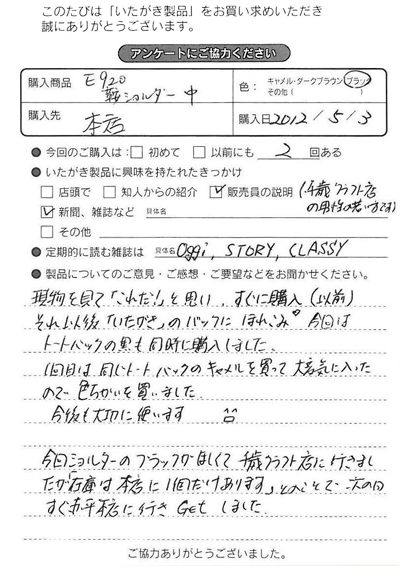 このたびは「いたがき製品」をお買い求めいただき
誠にありがとうございます。
アンケートにご協力ください
購入商品 E920 鞍ショルダー中
色： キャメル・ダークブラウン・ブラック
その他（ ）
購入先 本店
購入日 2012/5/3
● 今回のご購入は：□ 初めて □ 以前にも 2 回ある
● いたがき製品に興味を持たれたきっかけ
□ 店頭で □ 知人からの紹介 ☑ 販売員の説明 (千歳クラフト店の男性の若い方です)
☑ 新聞、雑誌など 具体名
□ その他
● 定期的に読む雑誌は 具体名 Oggi, STORY, CLASSY
● 製品についてのご意見・ご感想・ご要望などをお聞かせください。
現物を見て「これだ!」と思い、すぐに購入(以前)
それ以後「いたがき」のバックにほれこみ♡ 今回は
トートバックの黒も同時に購入しました。
1回目は同じトートバックのキャメルを買って大変気に入った
ので色ちがいを買いました。
今後も大切に使います ^^
今回ショルダーのブラックがほしくて千歳クラフト店に行きまし
たが「在庫は本店に1個だけあります」とのことで次の日
すぐ赤平本店に行きGetしました。
ご協力ありがとうございました。